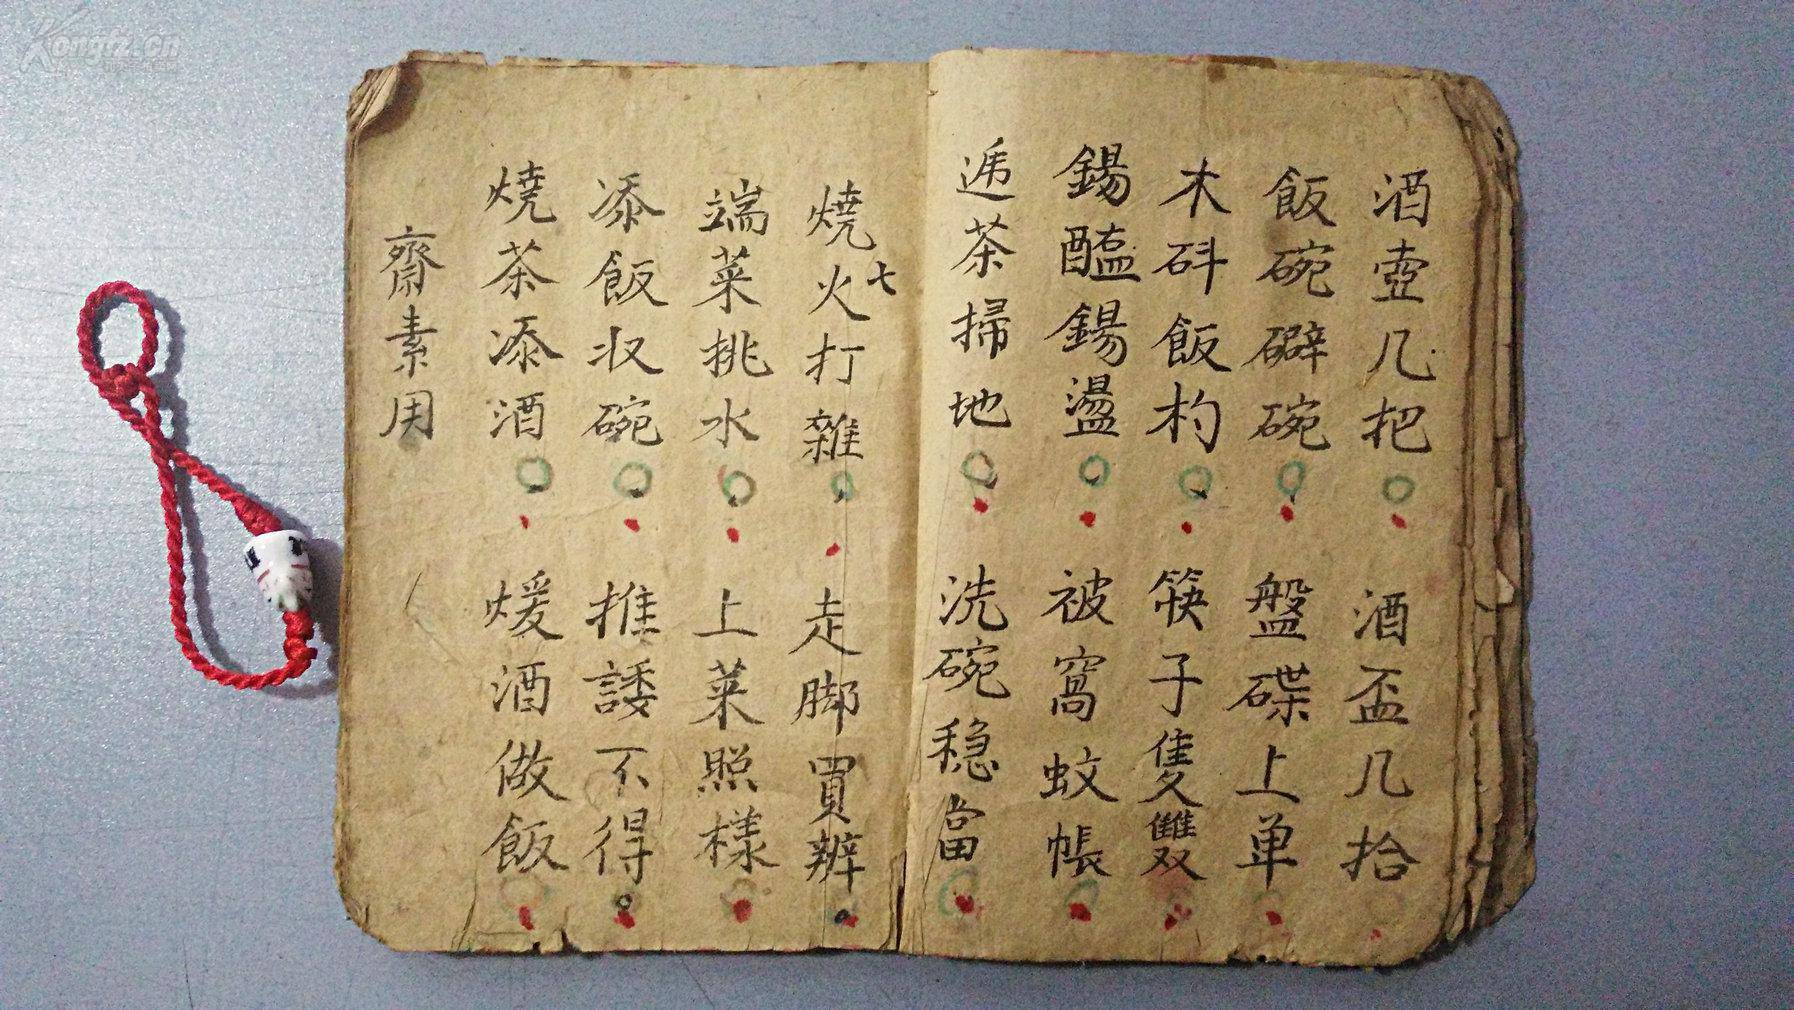 酒壺几把 酒盃几拾
飯碗礕碗 盤碟上单
木㪷飯杓 筷子隻雙
錫醢錫盪 被窩蚊帳
逓茶掃地 洗碗稳當
燒火打雜 走脚買辦
七
端菜挑水 上菜照樣
添飯収碗 推諉不得
燒茶添酒 煖酒做飯
齋素用
Kongfz.cn